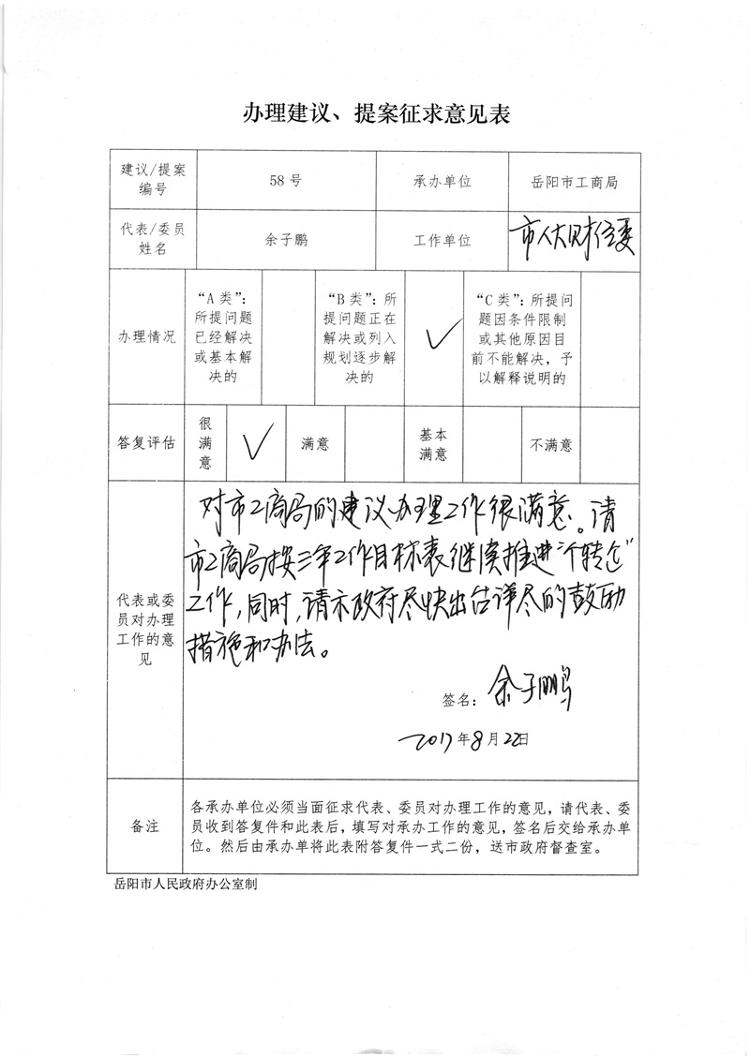 办理建议、提案征求意见表
建议/提案
编号
58号
承办单位
岳阳市工商局
代表/委员
姓名
余子鹏
工作单位
市人大财经委
办理情况
“A类”：
所提问题
已经解决
或基本解
决的
“B类”：所
提问题正在
解决或列入
规划逐步解
决的
✓
“C类”：所提问
题因条件限制
或其他原因目
前不能解决，予
以解释说明的
答复评估
很
满
意
✓
满意
基本
满意
不满意
代表或委
员对办理
工作的意
见
对市工商局的建议办理工作很满意。请
市工商局按三年工作目标表继续推进“个转企”
工作，同时，请市政府尽快出台详尽的鼓励
措施和办法。
签名：余子鹏
2017年8月22日
备注
各承办单位必须当面征求代表、委员对办理工作的意见，请代表、委
员收到答复件和此表后，填写对承办工作的意见，签名后交给承办单
位。然后由承办单将此表附答复件一式二份，送市政府督查室。
岳阳市人民政府办公室制